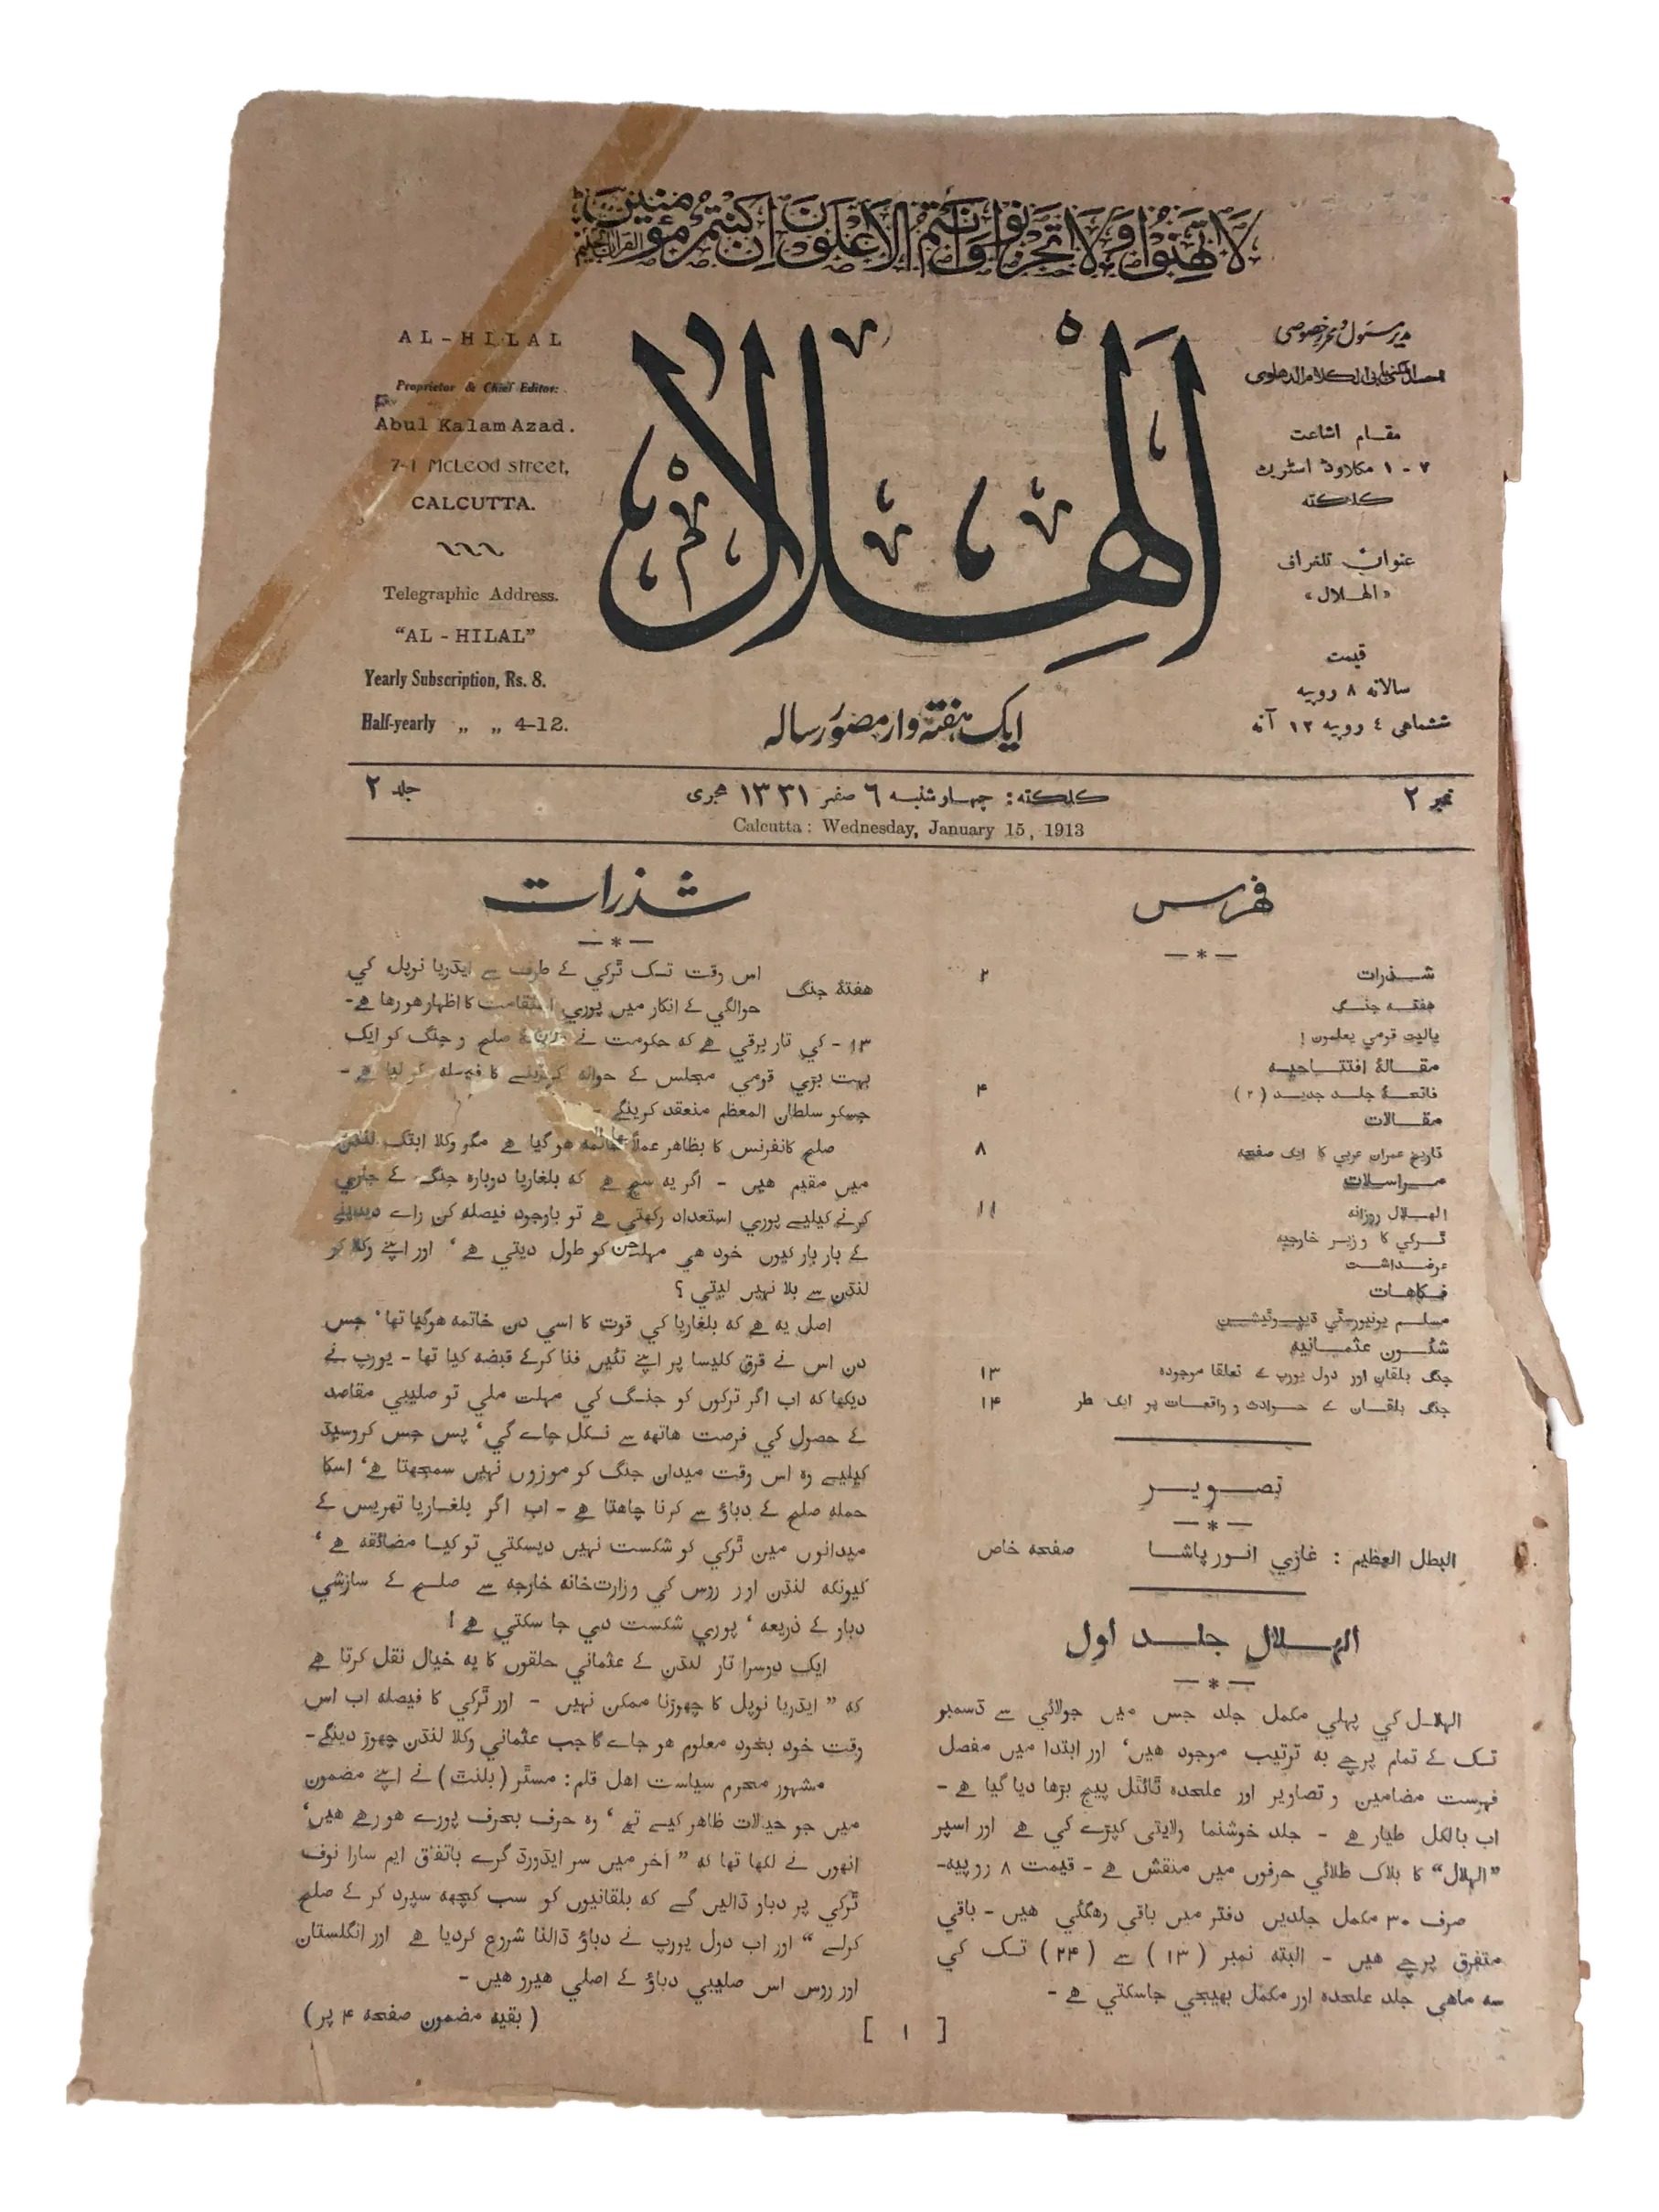 لَا تَهِنُوا وَلَا تَحْزَنُوا وَأَنْتُمُ الْأَعْلَوْنَ إِنْ كُنْتُمْ مُؤْمِنِينَ
القرآن الحكيم
AL-HILAL
Proprietor & Chief Editor:
Abul Kalam Azad.
7-1 McLeod street,
CALCUTTA.
Telegraphic Address.
"AL-HILAL"
Yearly Subscription, Rs. 8.
Half-yearly „ „ 4-12.
الهلال
ایک ہفتہ وار مصور رسالہ
مدیر مسئول و محرر خصوصی
مقام اشاعت
۷ - ۱ مکلاوڈ اسٹریٹ
کلکتہ
عنوان تلغراف
«الہلال»
قیمت
سالانہ ۸ روپیہ
ششماہی ٤ روپیہ ۱۲ آنہ
نمبر ۲
کلکتہ: چہار شنبہ ٦ صفر ۱۳۳۱ ہجری
جلد ۲
Calcutta: Wednesday, January 15, 1913
فہرس
شذرات ۲
ہفتۂ جنگ
یالیت قومي یعلمون !
مقالۂ افتتاحیہ
فاتحۂ جلد جدید (۲) ۴
مقالات
تاریخ عمران عربي کا ایک صفحہ ۸
مراسلات
الہلال روزانہ ۱۱
ٹرکي کا وزیر خارجیہ
عرضداشت
فکاهات
مسلم یونیورسٹي ڈیپوٹیشن
شئون عثمانیہ
جنگ بلقان اور دول یورپ کے تعلقا موجودہ ۱۳
جنگ بلقان کے حوادث و واقعات پر ایک نظر ۱۴
تصویر
البطل العظیم : غازي انور پاشا صفحہ خاص
الہلال جلد اول
الہلال کي پہلي مکمل جلد جس میں جولائي سے دسمبر
تک کے تمام پرچے بہ ترتیب موجود ہیں، اور ابتدا میں مفصل
فہرست مضامین و تصاویر اور علحدہ ٹائٹل پیج بڑھا دیا گیا ہے -
اب بالکل طیار ہے - جلد خوشنما ولایتی کپڑے کي ہے اور اسپر
"الہلال" کا بلاک طلائي حرفوں میں منقش ہے - قیمت ۸ روپیہ-
صرف ۳۰ مکمل جلدیں دفتر میں باقي رہگئي ہیں - باقي
متفرق پرچے ہیں - البتہ نمبر (۱۳) سے (۲۴) تک کي
سہ ماہي جلد علحدہ اور مکمل بھیجي جاسکتي ہے -
شذرات
ہفتۂ جنگ
اس وقت تک ٹرکي کے طرف سے ایڈریا نوپل کي
حوالگي کے انکار میں پوري استقامت کا اظہار ہو رہا ہے-
۱۳ - کي تار برقي ہے کہ حکومت نے صلح و جنگ کو ایک
بہت بڑي قومي مجلس کے حوالہ کردینے کا فیصلہ کر لیا ہے -
جسکو سلطان المعظم منعقد کرینگے -
صلح کانفرنس کا بظاہر عملاً خاتمہ ہو گیا ہے مگر وکلا ابتک لنڈن
میں مقیم ہیں - اگر یہ سچ ہے کہ بلغاریا دوبارہ جنگ کے جاري
کرنے کیلیے پوري استعداد رکھتي ہے تو باوجود فیصلہ کن راے دیدینے
کے بار بار کیوں خود هي مہلت کو طول دیتي ہے، اور اپنے وکلا کو
لنڈن سے بلا نہیں لیتي ؟
اصل یہ ہے کہ بلغاریا کي قوت کا اسي دن خاتمہ ہوگیا تھا، جس
دن اس نے قرق کلیسا پر اپنے تئیں فنا کرکے قبضہ کیا تھا - یورپ نے
دیکھا کہ اب اگر ترکوں کو جنگ کي مہلت ملي تو صلیبي مقاصد
کے حصول کي فرصت ہاتھ سے نکل جاے گي، پس جس کروسیڈ
کیلیے وہ اس وقت میدان جنگ کو موزوں نہیں سمجھتا ہے، اسکا
حملہ صلح کے دباؤ سے کرنا چاہتا ہے - اب اگر بلغاریا تھریس کے
میدانوں مین ٹرکي کو شکست نہیں دیسکتي تو کیا مضائقہ ہے،
کیونکہ لنڈن اور روس کي وزارت خانہ خارجہ سے صلح کے سازشي
دباو کے ذریعہ، پوري شکست دي جا سکتي ہے !
ایک دوسرا تار لنڈن کے عثماني حلقوں کا یہ خیال نقل کرتا ہے
کہ " ایڈریا نوپل کا چھوڑنا ممکن نہیں - اور ٹرکي کا فیصلہ اب اس
وقت خود بخود معلوم ہو جاے گا جب عثماني وکلا لنڈن چھوڑ دینگے-
مشہور محرم سیاست اہل قلم: مسٹر (بلنٹ) نے اپنے مضمون
میں جو خیالات ظاہر کیے تھے، وہ حرف بحرف پورے ہو رہے ہیں،
انھوں نے لکھا تھا کہ " آخر میں سر ایڈورڈ گرے باتفاق ایم سارا نوف
ٹرکي پر دباو ڈالیں گے کہ بلقانیوں کو سب کچھہ سپرد کر کے صلح
کرلے " اور اب دول یورپ نے دباؤ ڈالنا شروع کردیا ہے اور انگلستان
اور روس اس صلیبي دباؤ کے اصلي ہیرو ہیں -
( بقیہ مضمون صفحہ ۴ پر )
[ ۱ ]